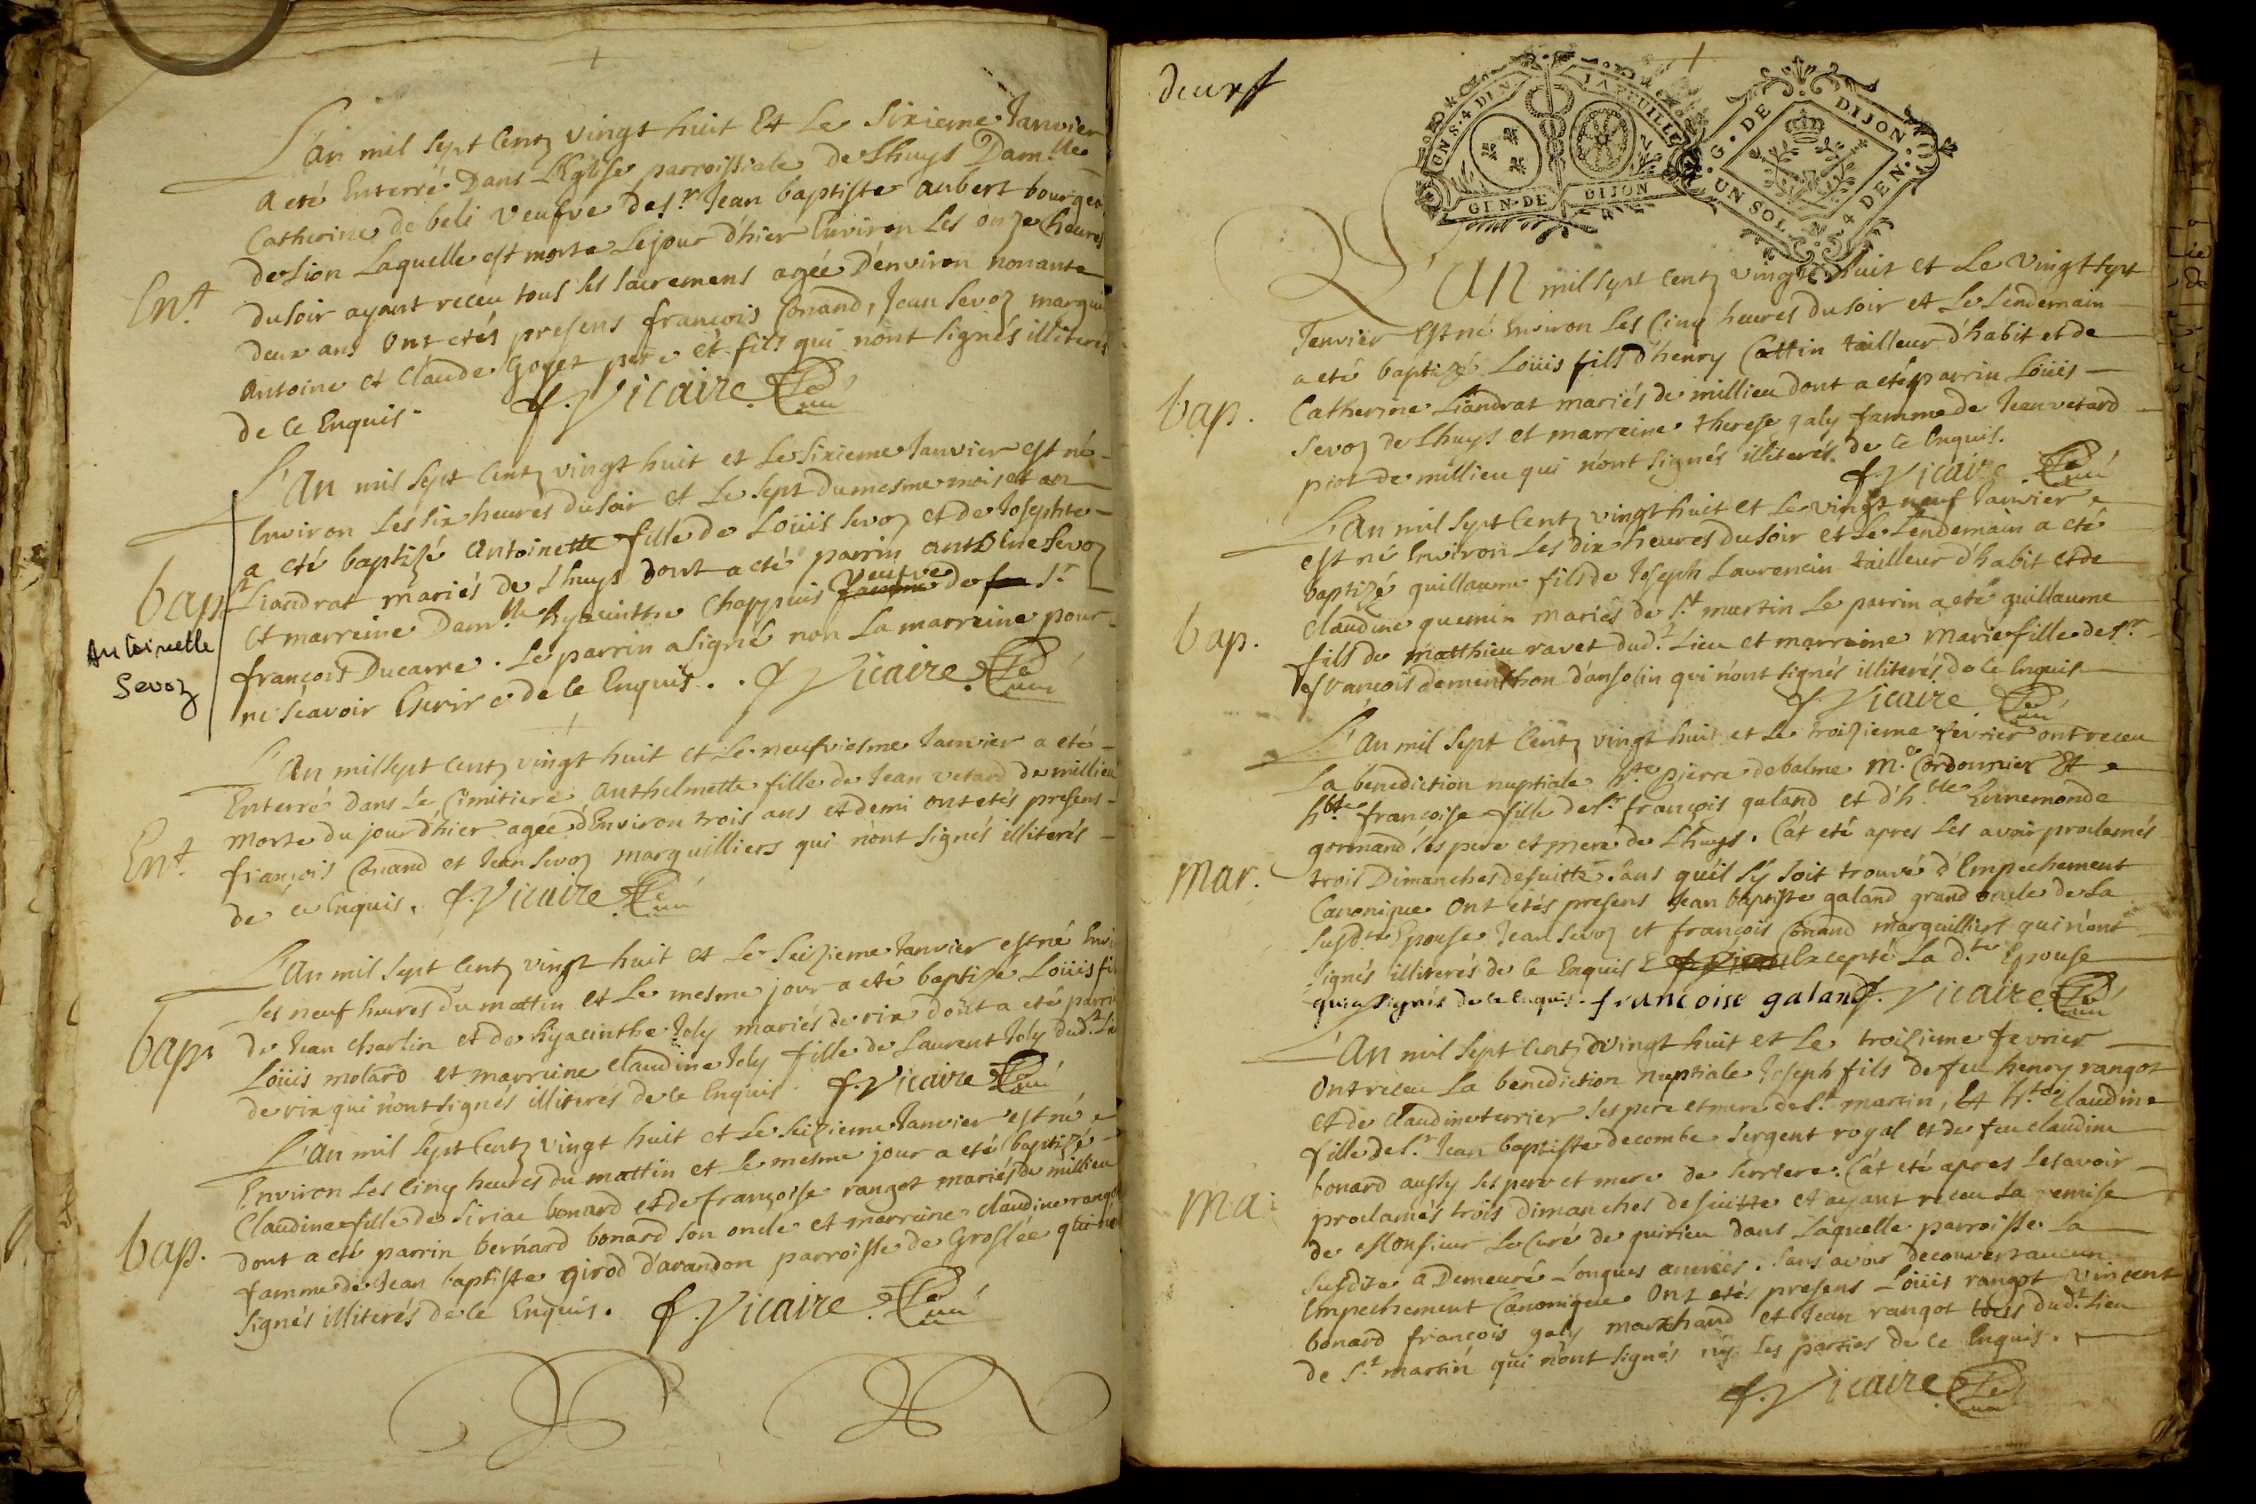 L'an mil sept Centz vingt huit Et Le Sixieme Janvier
a eté Enterré Dans L'Eglise parroissiale de Lhuys Dam.lle
Catherine de beli veufve de s.r Jean baptiste aubert bourgeo
de Lion Laquelle est morte Le jour d'hier Environ Les onze heures
Ent.
du soir ayant receu tous les sacremens agée D'environ nonante
deux ans ont etés presens françois Conand, Jean Sevoz margui
antoine et Claude Goyet pere et fils qui n'ont signés illiterés
de ce Enquis. f. Vicaire Curé
L'An mil sept Centz vingt huit et Le Sixieme Janvier est né
Environ Les six heures du soir et Le sept du mesme mois et an
a eté baptizé Antoinette fille de Loüis Sevoz et de Josephte
bap.
Liandrat mariés de Lhuys dont a eté parrin antoine Sevoz
Antoinette
Sevoz
et marreine Dam.lle hyacinthe Chappuis veufve de s.r
françois Ducarre. Le parrin a signé non La marreine pour
ne sçavoir Escrire de ce Enquis. . f Vicaire Curé
L'An mil sept Centz vingt huit et Le neufviesme Janvier a eté
Enterré Dans Le Cimitiere anthelmette fille de Jean vetard de millieu
morte du jour d'hier agée d'Environ trois ans et demi ont etés presens
Ent.
françois Conand et Jean Sevoz marguilliers qui n'ont signés illiterés
de ce Enquis. f. Vicaire Curé
L'An mil sept Centz vingt huit et Le Seizieme Janvier est né Envi
Les neuf heures du mattin et Le mesme jour a eté baptize Loüis fi
bap.
de Jean Charlin et de hyacinthe Joly mariés de rix dont a eté parri
Loüis molard et marreine Claudine Joly fille de Laurent Joly dud.t Li
de rix qui n'ont signés illiterés de ce Enquis f. Vicaire Curé
L'an mil sept Centz vingt huit et Le Seizieme Janvier est né
Environ Les Cinq heures du mattin et Le mesme jour a eté baptizé
Claudine fille de Siriac bonard et de françoise rangot mariés de millieu
bap.
dont a eté parrin bernard bonard son oncle et marreine Claudine rango
famme de Jean baptiste girod d'avandon parroisse de Groslée qui n'o
signés illiterés de ce Enquis. f. Vicaire Curé
deux
UN S. 4 DEN LA FEUILLE
GEN DE DIJON
G. DE DIJON
UN SOL 4 DEN.
L'AN mil sept Centz vingt huit et Le vingt sept
Janvier Est né Environ Les Cinq heures du soir et Le Lendemain
a eté baptizé Loüis fils d'henry Cattin tailleur d'habit et de
bap.
Catherine Liandrat mariés de millieu dont a eté parrin Loüis
Sevoz de Lhuys et marreine therese galy famme de Jean vetard
piot de millieu qui n'ont signés illiterés de ce Enquis.
f. Vicaire Curé
L'an mil sept Centz vingt huit et Le vingt neuf Janvier
est né Environ Les dix heures du soir et Le Lendemain a eté
baptizé guillaume fils de Joseph Laurencin tailleur d'habit et de
bap.
Claudine quemin mariés de s.t martin Le parrin a eté guillaume
fils de matthieu ravet dud.t Lieu et marreine marie fille de s.r
françois dementhon d'ansolin qui n'ont signés illiterés de ce Enquis
f. Vicaire Curé
L'An mil sept Centz vingt huit et Le troizieme fevrier ont receu
La benediction nuptiale h.te pierre debalme m.e Cordonnier Et
h.ble françoise fille de s.r françois galand et d'h.ble Ennemonde
gonnand ses pere et mere de Lhuys. Cat eté apres Les avoir proclamés
mar.
trois Dimanches de suitte sans qu'il s'y soit trouvé d'Empechement
Canonique Ont etés presens Jean baptiste galand grand oncle de La
susd.te Epouse Jean Sevoz et françois Conand marguilliers qui n'ont
signés illiterés de ce Enquis Excepté La d.te Epouse
qui a signés de ce Enquis. francoise galand f. Vicaire Curé
L'An mil sept Centz vingt huit et Le troizieme fevrier
Ont receu La benediction nuptiale Joseph fils de feu henry rangot
et de Claudine terrier ses pere et mere de s.t martin, Et h.te Claudine
fille de s.r Jean baptiste decombe sergent royal et de feu Claudine
bonard aussy ses pere et mere de serriere. Cat eté apres Les avoir
ma:
proclamés trois Dimanches de suitte et ayant receu La remise
de Monsieur Le Curé de quirieu dans Laquelle parroisse La
susdite a Demeuré Longues années. Sans avoir decouvert aucun
Empechement Canonique Ont etés presens Loüis rangot vincent
bonard françois galy marchand et Jean rangot tous dud.t Lieu
de s.t martin qui n'ont signés ny Les parties de ce Enquis.
f. Vicaire Curé